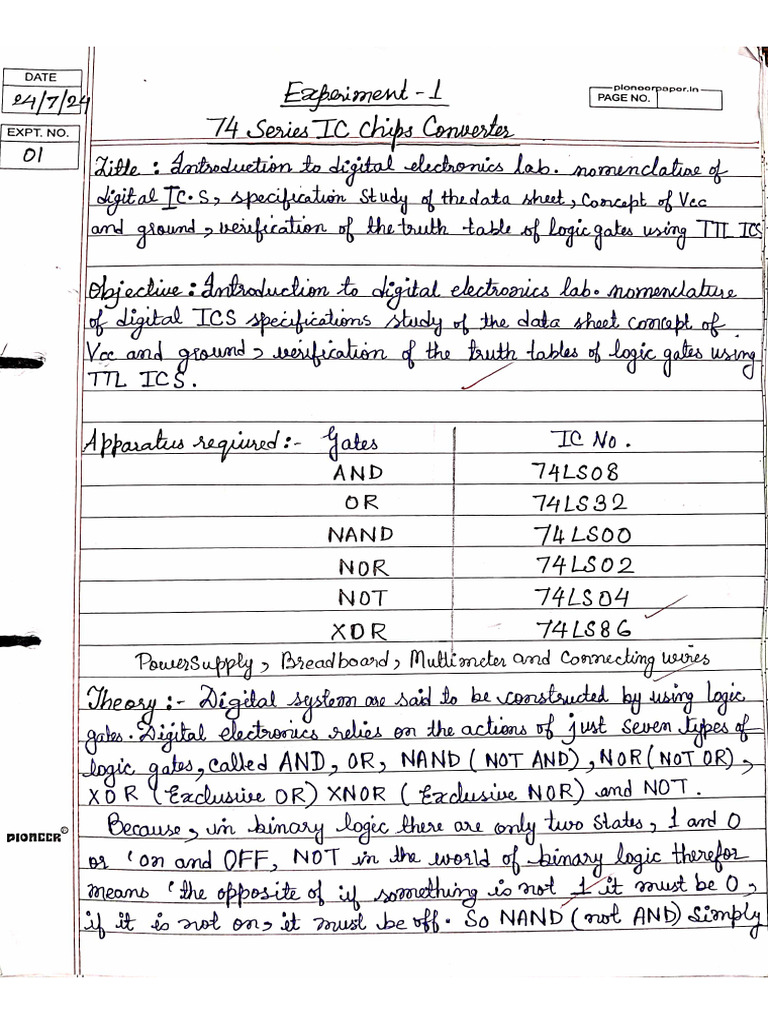 DATE
24/7/24
EXPT. NO.
01
Experiment - 1
pioneerpaper.in
PAGE NO.
74 Series IC Chips Converter
Title : Introduction to digital electronics lab. nomenclative of
digital IC.S, specification study of the data sheet, Concept of Vcc
and ground, verification of the truth table of logic gates using TTL ICS
Objective : Introduction to digital electronics lab. nomenclature
of digital ICS specifications study of the data sheet concept of
Vcc and ground, verification of the truth tables of logic gates using
TTL ICS.
Apparatus reqiured :- Gates IC No.
AND 74LS08
OR 74LS32
NAND 74LS00
NOR 74LS02
NOT 74LS04
XOR 74LS86
Power Supply, Breadboard, Multimeter and Connecting wires
Theory :- Digital system are said to be constructed by using logic
gates. Digital electronics relies on the actions of just seven types of
logic gates, called AND, OR, NAND (NOT AND), NOR (NOT OR),
XOR (Exclusive OR) XNOR (Exclusive NOR) and NOT.
Because, in binary logic there are only two states, 1 and 0
or 'on and OFF, NOT in the world of binary logic therefor
means 'the opposite of if something is not 1 it must be 0,
if it is not on, it must be off. So NAND (not AND) simply
PIONEER